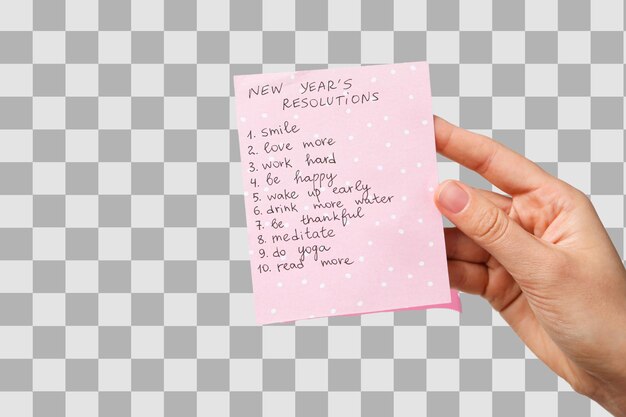 NEW YEAR'S
RESOLUTIONS
1. smile
2. love more
3. work hard
4. be happy
5. wake up early
6. drink more water
7. be thankful
8. meditate
9. do yoga
10. read more